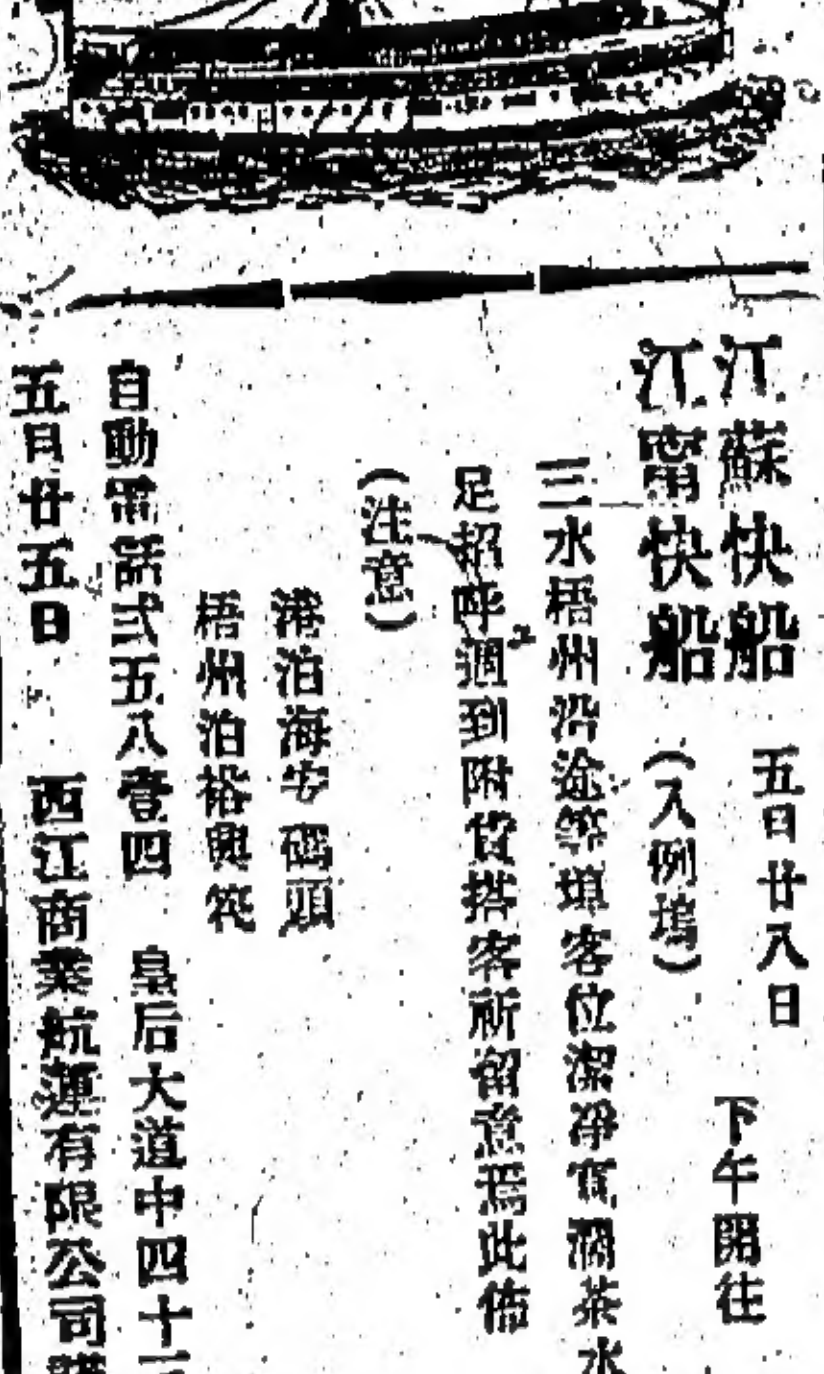 江蘇快船 五月廿八日
下午開往
江甯快船 (入例塢)
三水梧州沿途等埠客位潔淨寬濶茶水
足招呼週到附貨搭客祈留意焉此佈
(注意)
港泊海安碼頭
梧州泊裕興筏
自動電話弍五八壹四 皇后大道中四十
五月廿五日 西江商業航運有限公司謹